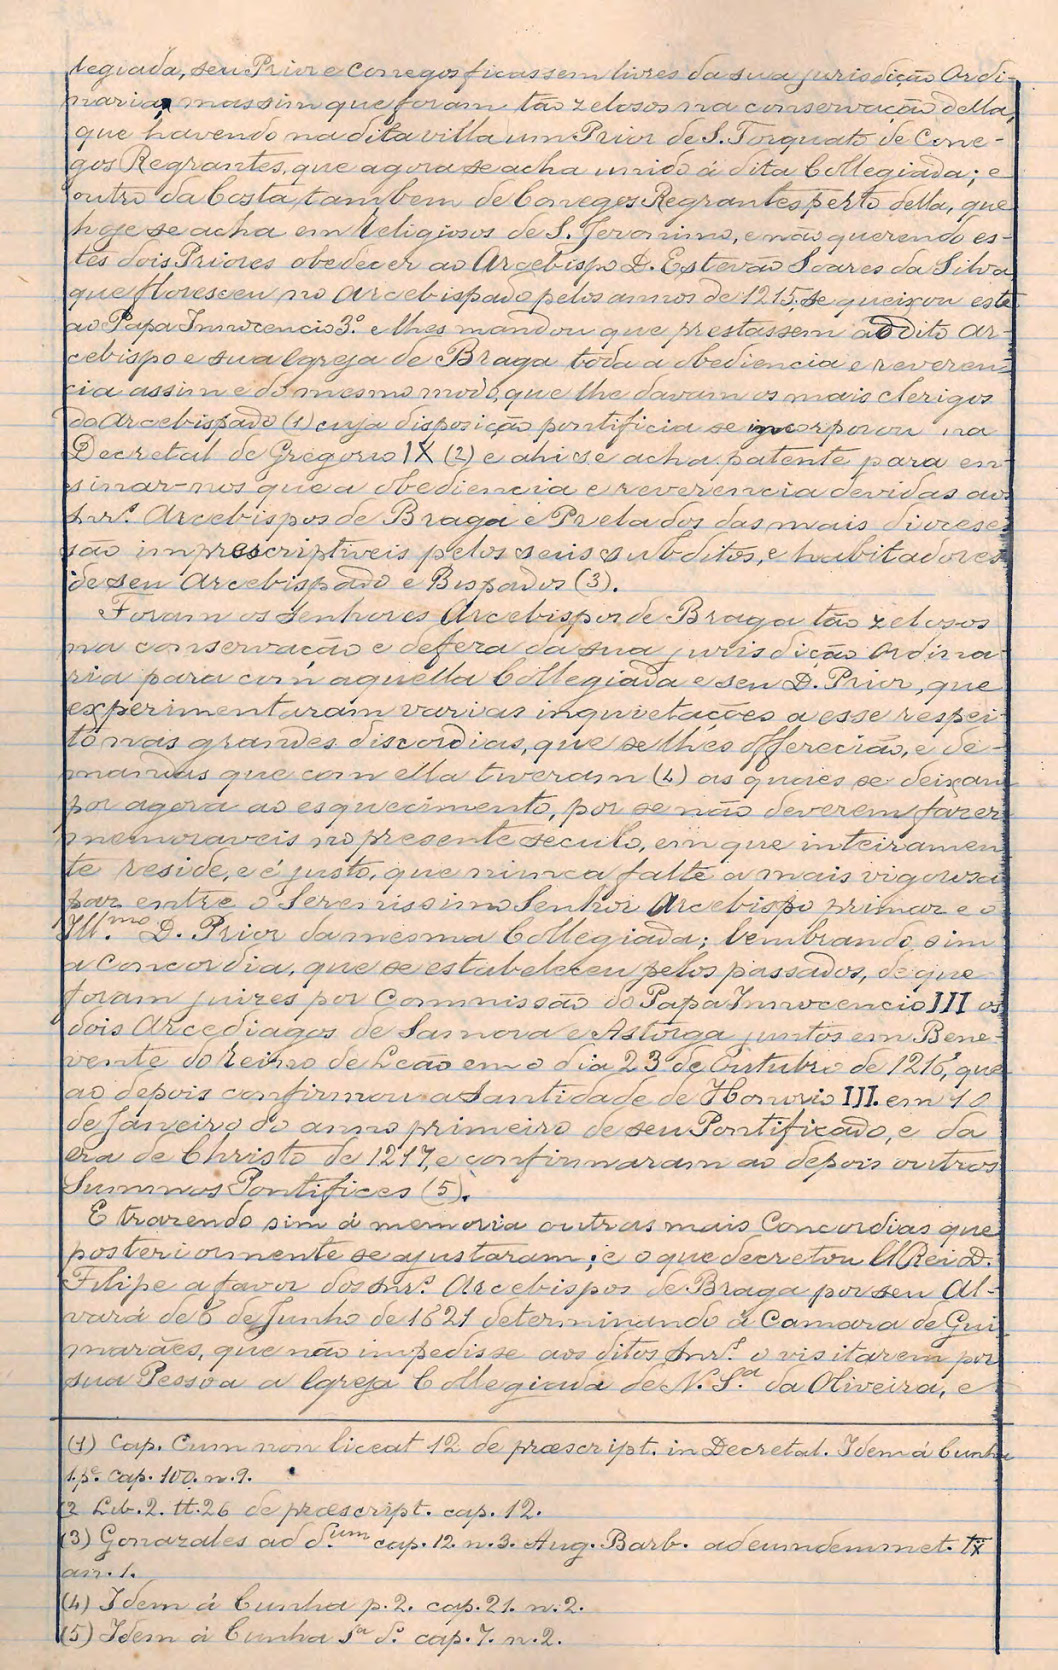 legiada, seu Prior e Conegos ficassem livres da sua jurisdição Ordi-
naria, mas sim que foram tão zelosos na conservação della,
que havendo na dita villa um Prior de S. Torquato de Cone-
gos Regrantes, que agora se acha unido á dita Collegiada; e
outro da Costa, tambem de Conegos Regrantes perto della, que
hoje se acha em Religiosos de S. Jeronimo, e não querendo es-
tes dois Priores obedecer ao Arcebispo D. Estevão Soares da Silva
que floresceu no Arcebispado pelos annos de 1215, se queixou este
ao Papa Innocencio 3.º e lhes mandou que prestassem ao dito Ar-
cebispo e sua Igreja de Braga toda a obediencia e reveren-
cia assim e do mesmo modo, que lhe davam os mais clerigos
do Arcebispado (1) cuja disposição pontificia se incorporou na
Decretal de Gregorio IX (2) e ahi se acha patente para en-
sinar-nos que a obediencia e reverencia devidas aos
Snr.s Arcebispos de Braga e Prelados das mais dioceses
são imprescriptiveis pelos seus subditos, e habitadores
de seu Arcebispado e Bispados (3).
Foram os Senhores Arcebispos de Braga tão zelosos
na conservação e defeza da sua jurisdição Ordina-
ria para com aquella Collegiada e seu D. Prior, que
experimentaram varias inquietações a esse respei-
to nas grandes discordias, que se lhes offerecião, e de-
mandas que com ella tiveram (4) as quaes se deixam
por agora ao esquecimento, por se não deverem fazer
memoraveis no presente seculo, em que inteiramen
te reside, e é justo, que nunca falte a mais vigorosa
paz entre o Serenissimo Senhor Arcebispo primaz e o
Ill.mo D. Prior da mesma Collegiada; lembrando sim
a Concordia, que se estabeleceu pelos passados, de que
foram juizes por Commissão do Papa Innocencio III os
dois Arcediagos de Samora e Astorga juntos em Bene-
vente do Reino de Leão em o dia 23 de Outubro de 1216, que
ao depois confirmou a Santidade de Honorio III. em 10
de Janeiro do anno primeiro de seu Pontificado, e da
era de Christo de 1217, e confirmaram ao depois outros
Summos Pontifices (5).
E trazendo sim á memoria outras mais Concordias que
posteriormente se ajustaram; e o que decretou El Rei D.
Filipe a favor dos Snr.s Arcebispos de Braga por seu Al-
vará de 6 de Junho de 1621 determinando á Camara de Gui
marães, que não impedisse aos ditos Snr.s o visitarem por
sua Pessoa a Igreja Collegiada de N. S.ª da Oliveira, e
(1) Cap. Cum non liceat 12 de præscript. in Decretal. Idem á Cunha
1.p.e cap. 100. n. 9.
(2 Lib. 2. tt. 26 de præscript. cap. 12.
(3) Gonzales ad d.um cap. 12 n. 3. Aug. Barb. ad eumdemmet. tx
an. 1.
(4) Idem á Cunha p. 2. cap. 21. n. 2.
(5) Idem á Cunha cap. 7. n. 2.